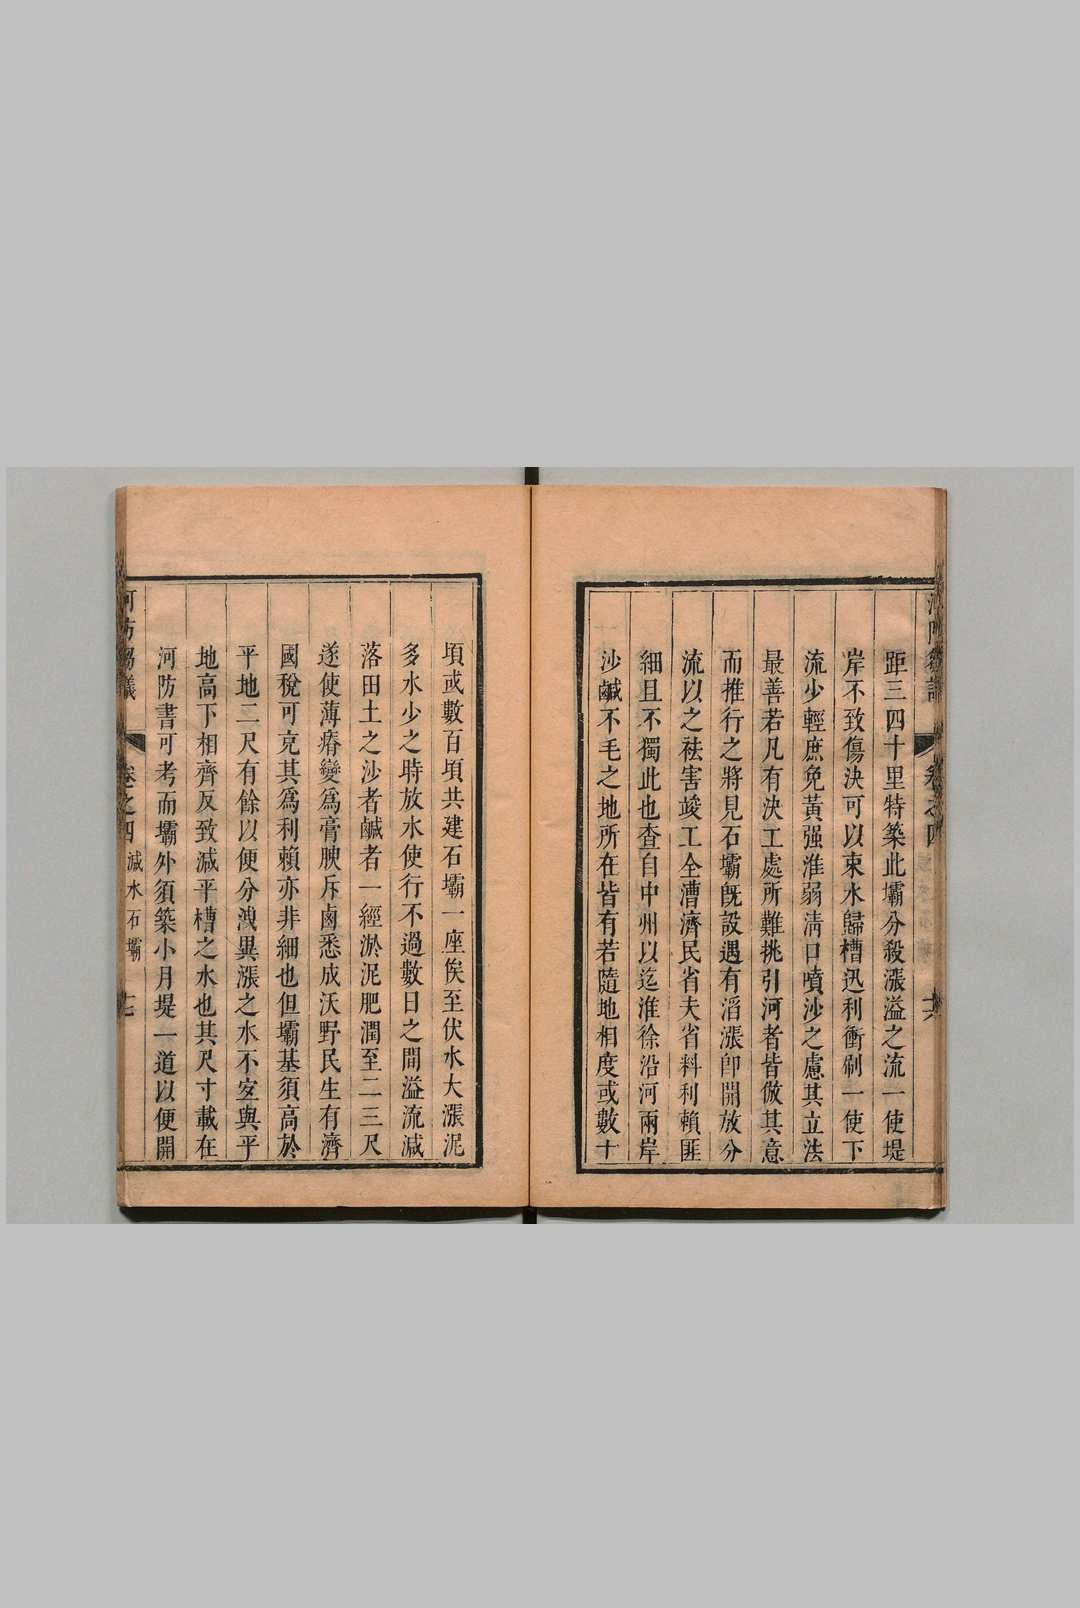 距三四十里特築此壩分殺漲溢之流一使堤
岸不致傷決可以束水歸槽迅利衝刷一使下
流少輕庶免黃强淮弱淸口噴沙之慮其立法
最善若凡有決工處所難挑引河者皆倣其意
而推行之將見石壩旣設遇有滔漲卽開放分
流以之祛害竣工全漕濟民省夫省料利賴匪
細且不獨此也查自中州以迄淮徐沿河兩岸
沙鹹不毛之地所在皆有若隨地相度或數十
卷之四
十六
頃或數百頃共建石壩一座俟至伏水大漲泥
多水少之時放水使行不過數日之間溢流減
落田土之沙者鹹者一經淤泥肥潤至二三尺
遂使薄瘠變爲膏腴斥鹵悉成沃野民生有濟
國稅可充其爲利賴亦非細也但壩基須高於
平地二尺有餘以便分洩異漲之水不宜與平
地高下相齊反致減平槽之水也其尺寸載在
河防書可考而壩外須築小月堤一道以便開
河防芻議
卷之四
減水石壩
十七